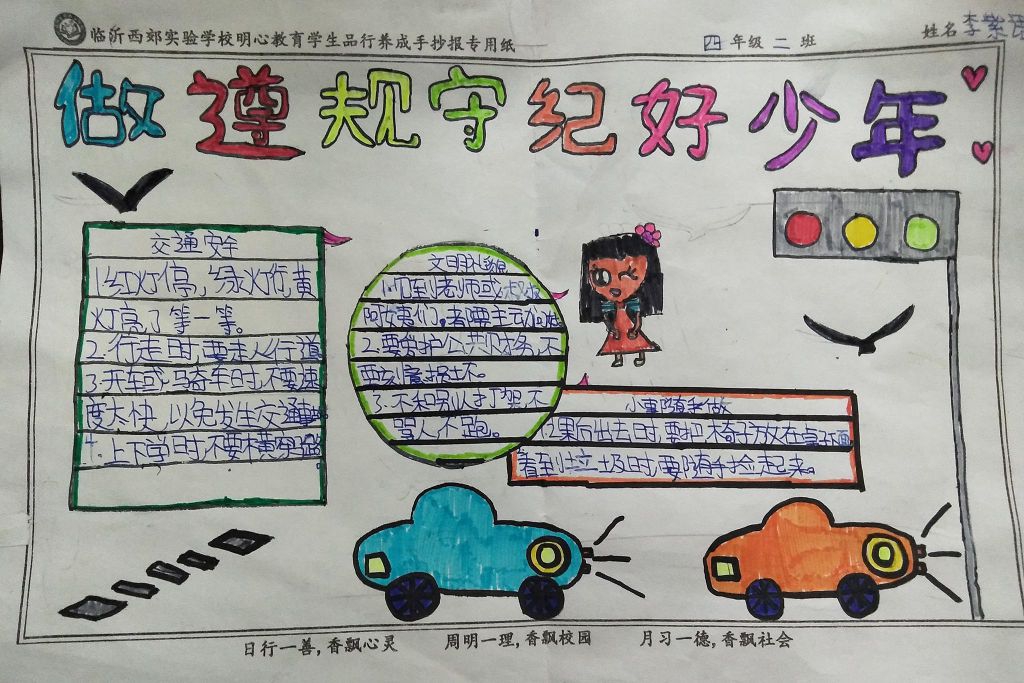 临沂西郊实验学校明心教育学生品行养成手抄报专用纸
四年级二班
姓名李紫
做遵规守纪好少年
交通安全
1.红灯停,绿灯行,黄
灯亮了等一等。
2.行走时,要走人行道
3.开车或骑车时,不要速
度太快,以免发生交通事
4.上下学时,不要横穿
文明礼貌
1.见到老师或叔叔
阿姨们。都要主动
2.要爱护公共财务,不
要刻意损坏。
3.不和别人打架,不
骂人,不跑。
小事随手做
2.果向出去时,要把椅子放在桌子
看到垃圾时,要随手捡起来。
日行一善,香飘心灵
周明一理,香飘校园
月习一德,香飘社会